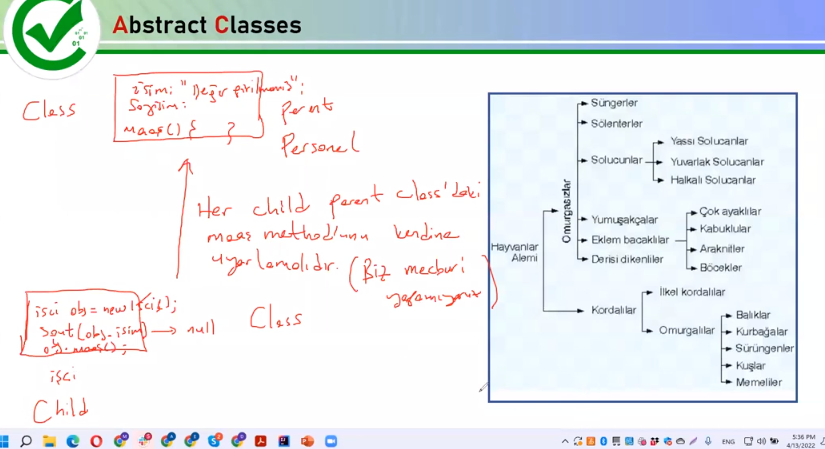 Abstract Classes
01
01
Class
isim: "Değer girilmemiş";
Soyisim:
maas() { }
Parent
Personel
Her child parent class'daki
maas method'unu kendine
uyarlamalıdır. (Biz mecburi
yapamıyoruz)
isci obj = new Isci();
Sout(obj.isim) → null
obj.maas();
Class
işçi
Child
Hayvanlar
Alemi
Omurgasızlar
Süngerler
Sölenterler
Solucunlar
Yassı Solucanlar
Yuvarlak Solucanlar
Halkalı Solucanlar
Yumuşakçalar
Eklem bacaklılar
Derisi dikenliler
Çok ayaklılar
Kabuklular
Araknitler
Böcekler
Kordalılar
İlkel kordalılar
Omurgalılar
Balıklar
Kurbağalar
Sürüngenler
Kuşlar
Memeliler
ENG
5:36 PM
4/13/2022